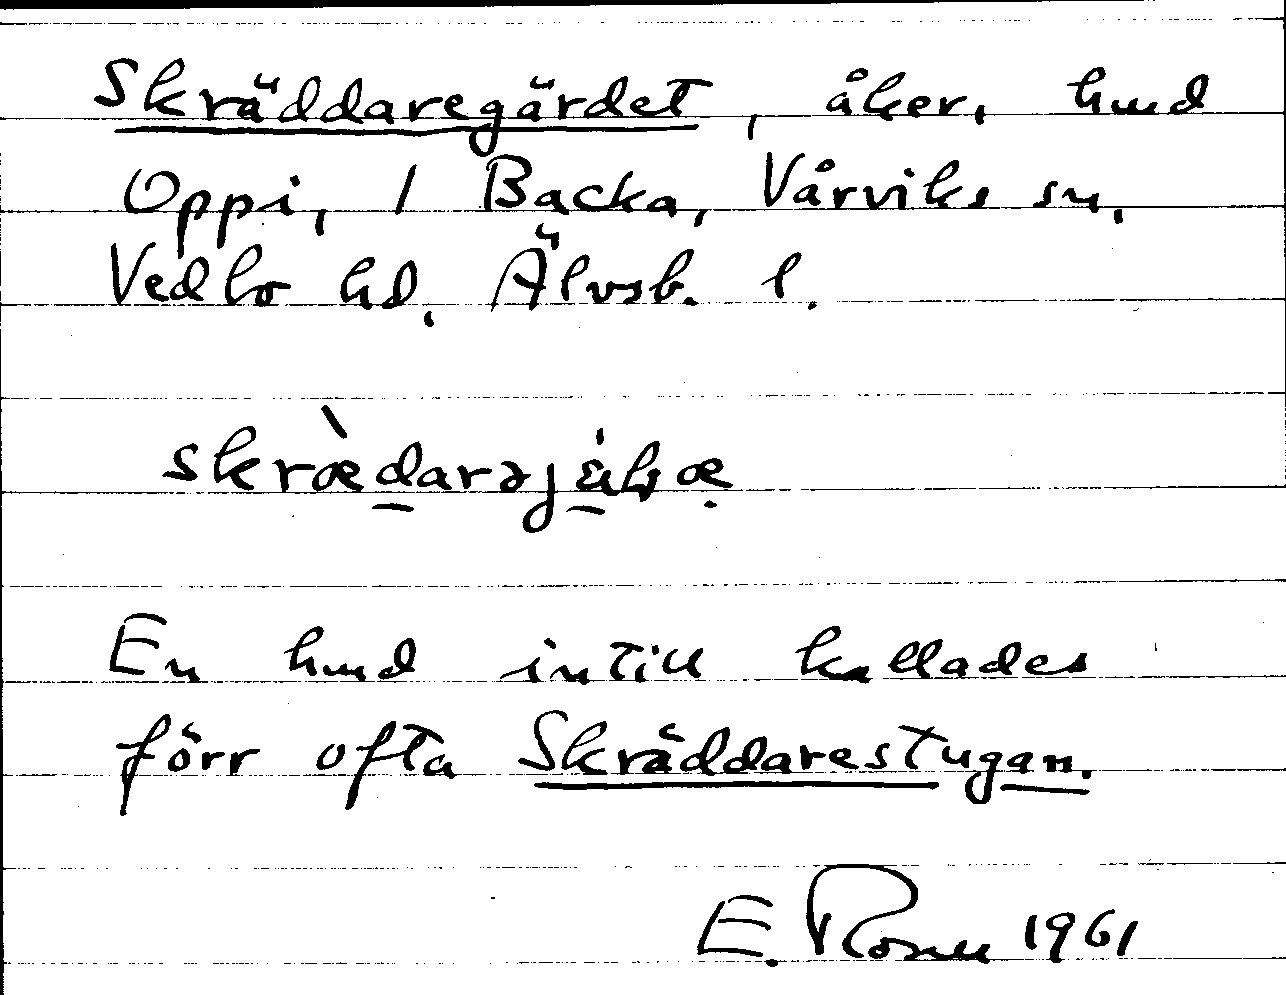 Skräddaregärdet, åker, hmd
Oppi, 1 Backa, Vårviks sn,
Vedbo hd, Älvsb. l.
En hmd intill kallades
förr ofta Skräddarestugan.
E. 1961